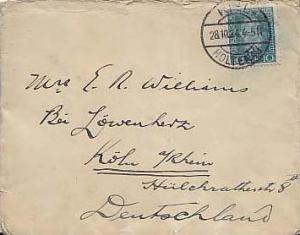 28.10.24.4-5N
HOLTENAU
Mrs E. R. Williams
Bei Löwenherz
Köln a/Rhein
Hülchratherstr 8
Deutschland